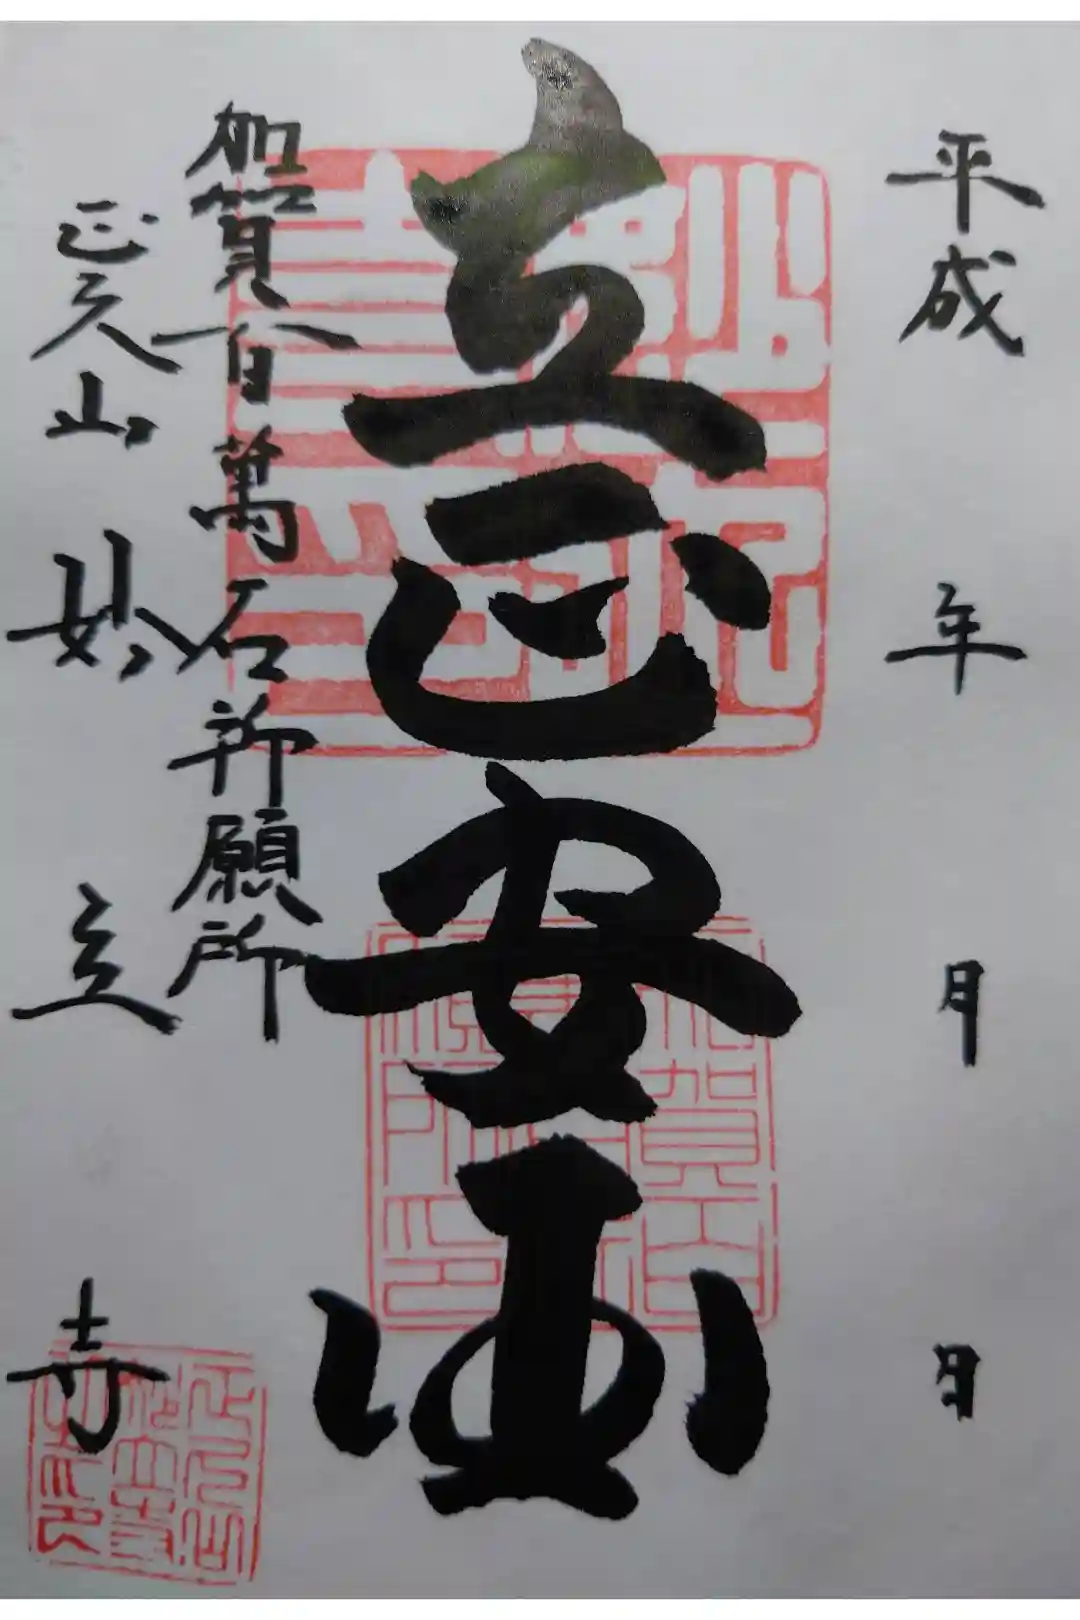 平成 年 月 日
立正安国
加賀百萬石祈願所
正久山 妙立寺